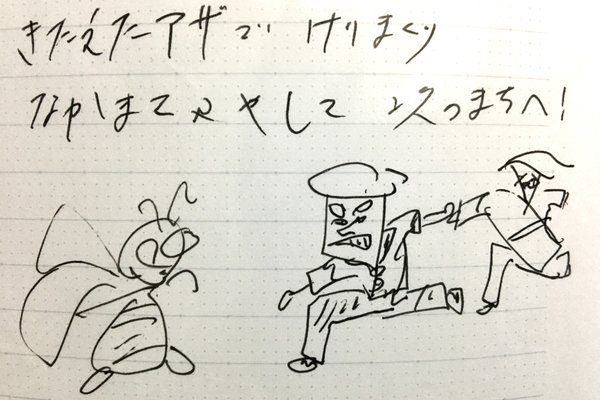 きたえたワザで けりまくり
なかまてふやして 次のまちへ!